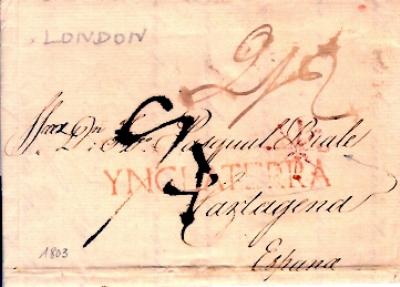 LONDON
2/2
Pasqual Biale
YNGLATERRA
Cartagena
España
1803